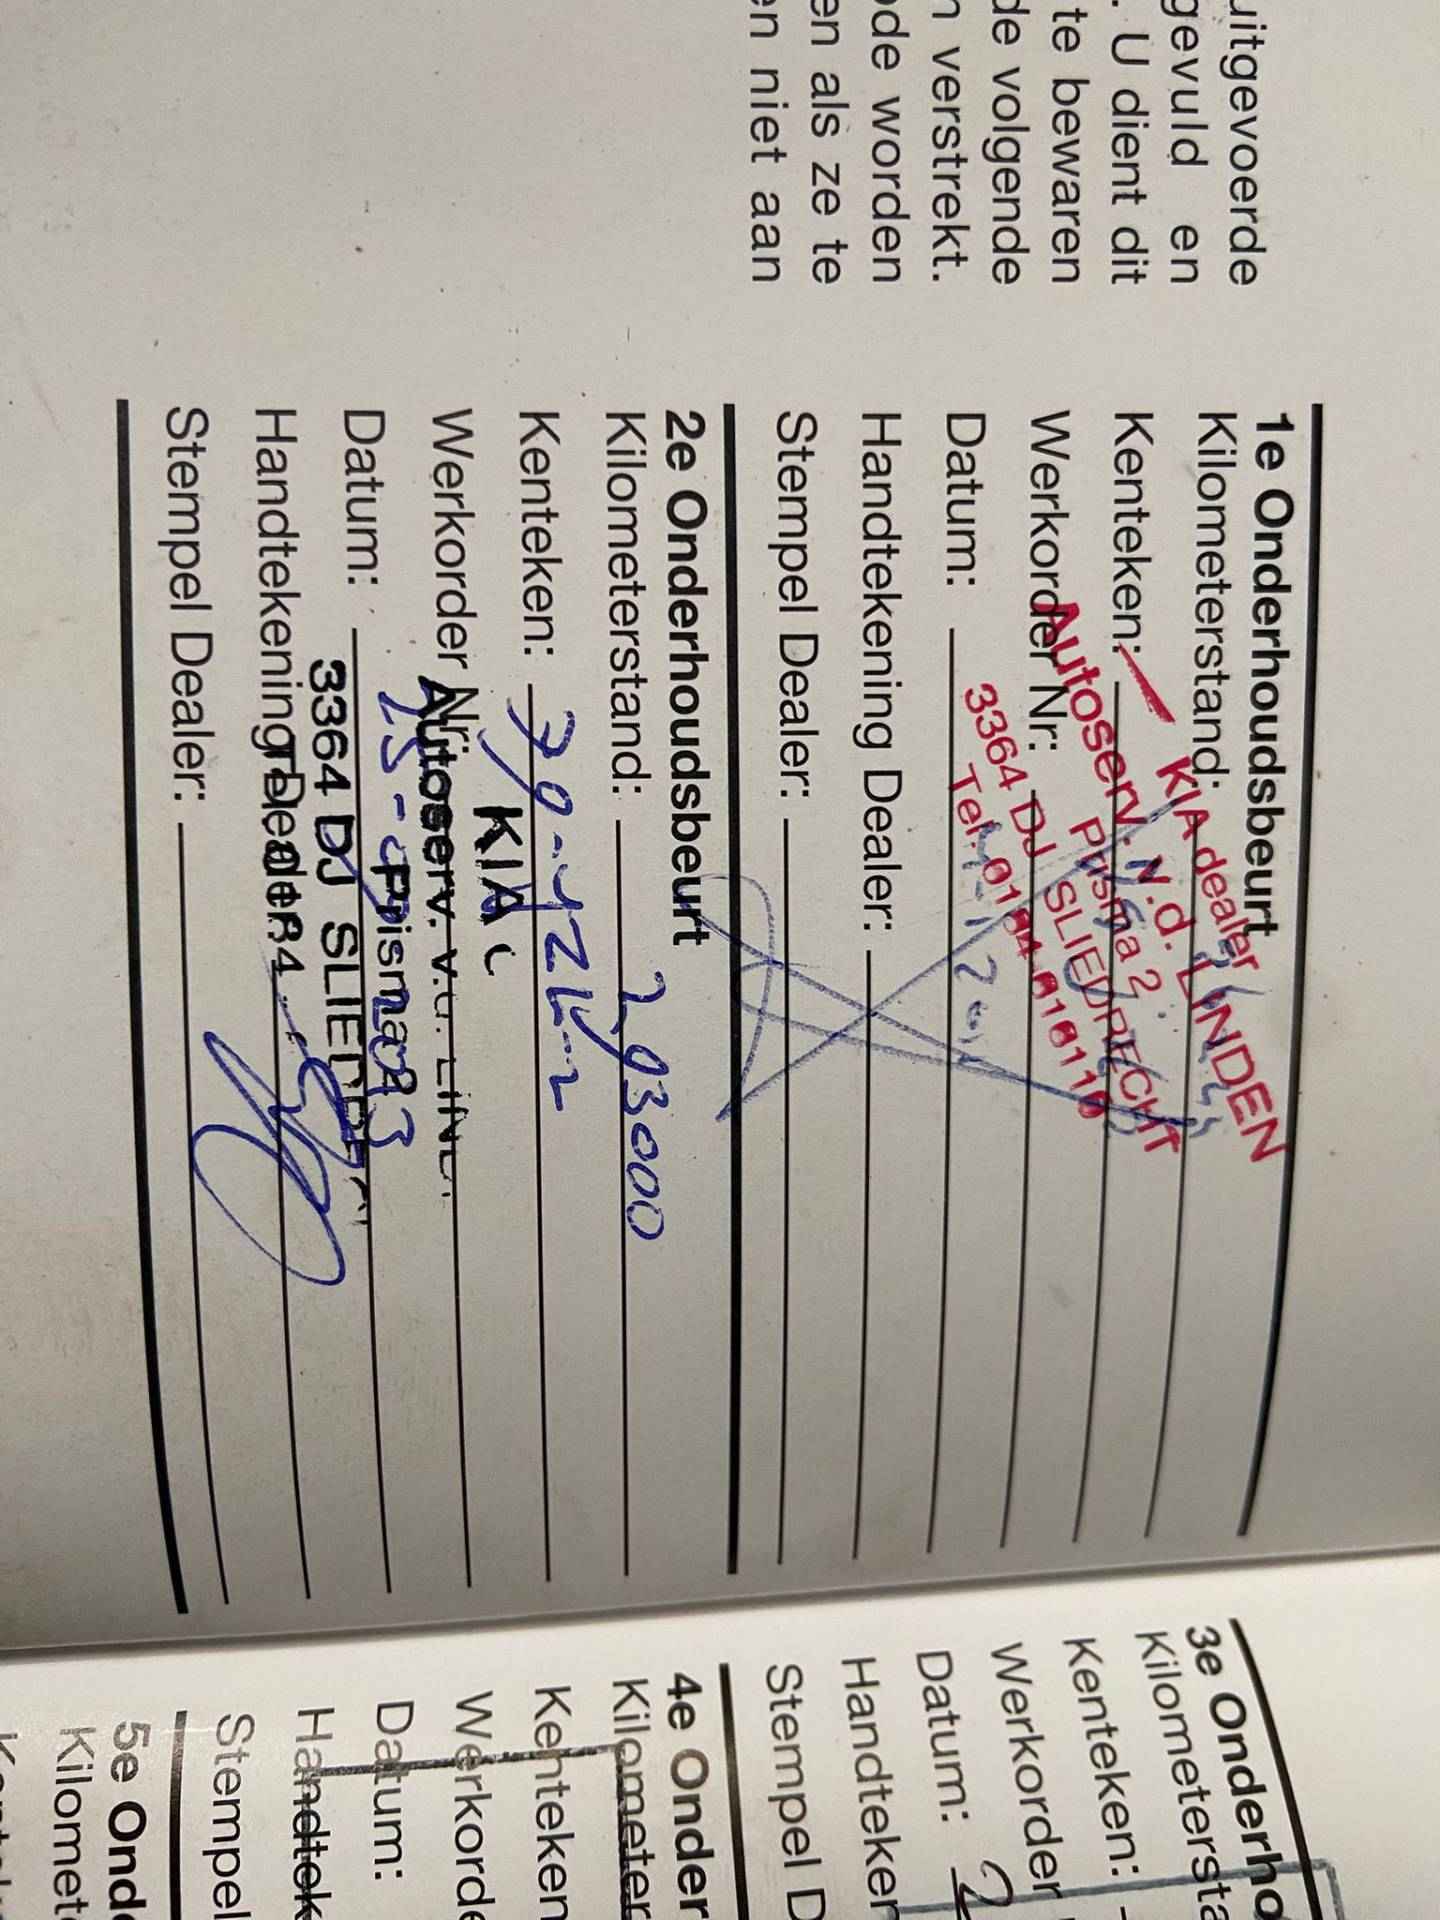 uitgevoerde
gevuld en
. U dient dit
te bewaren
de volgende
n verstrekt.
ode worden
en als ze te
en niet aan
1e Onderhoudsbeurt
Kilometerstand:
Kenteken:
Werkorder Nr:
Datum:
Handtekening Dealer:
Stempel Dealer:
KIA dealer
Autoserv. v.d. LINDEN
Prisma 2
3364 DJ SLIEDRECHT
Tel. 0184
2e Onderhoudsbeurt
Kilometerstand: 203000
Kenteken:
Werkorder Nr:
Datum:
Handtekening Dealer:
Stempel Dealer:
KIA
Autoserv. v.d. LIND
Prisma 2
3364 DJ SLIEDR
3e Onderho
Kilometersta
Kenteken:
Werkorder
Datum: 2
Handteken
Stempel D
4e Onder
Kilometer
Kenteken
Werkorde
Datum:
Handtek
Stempel
5e Onde
Kilomete